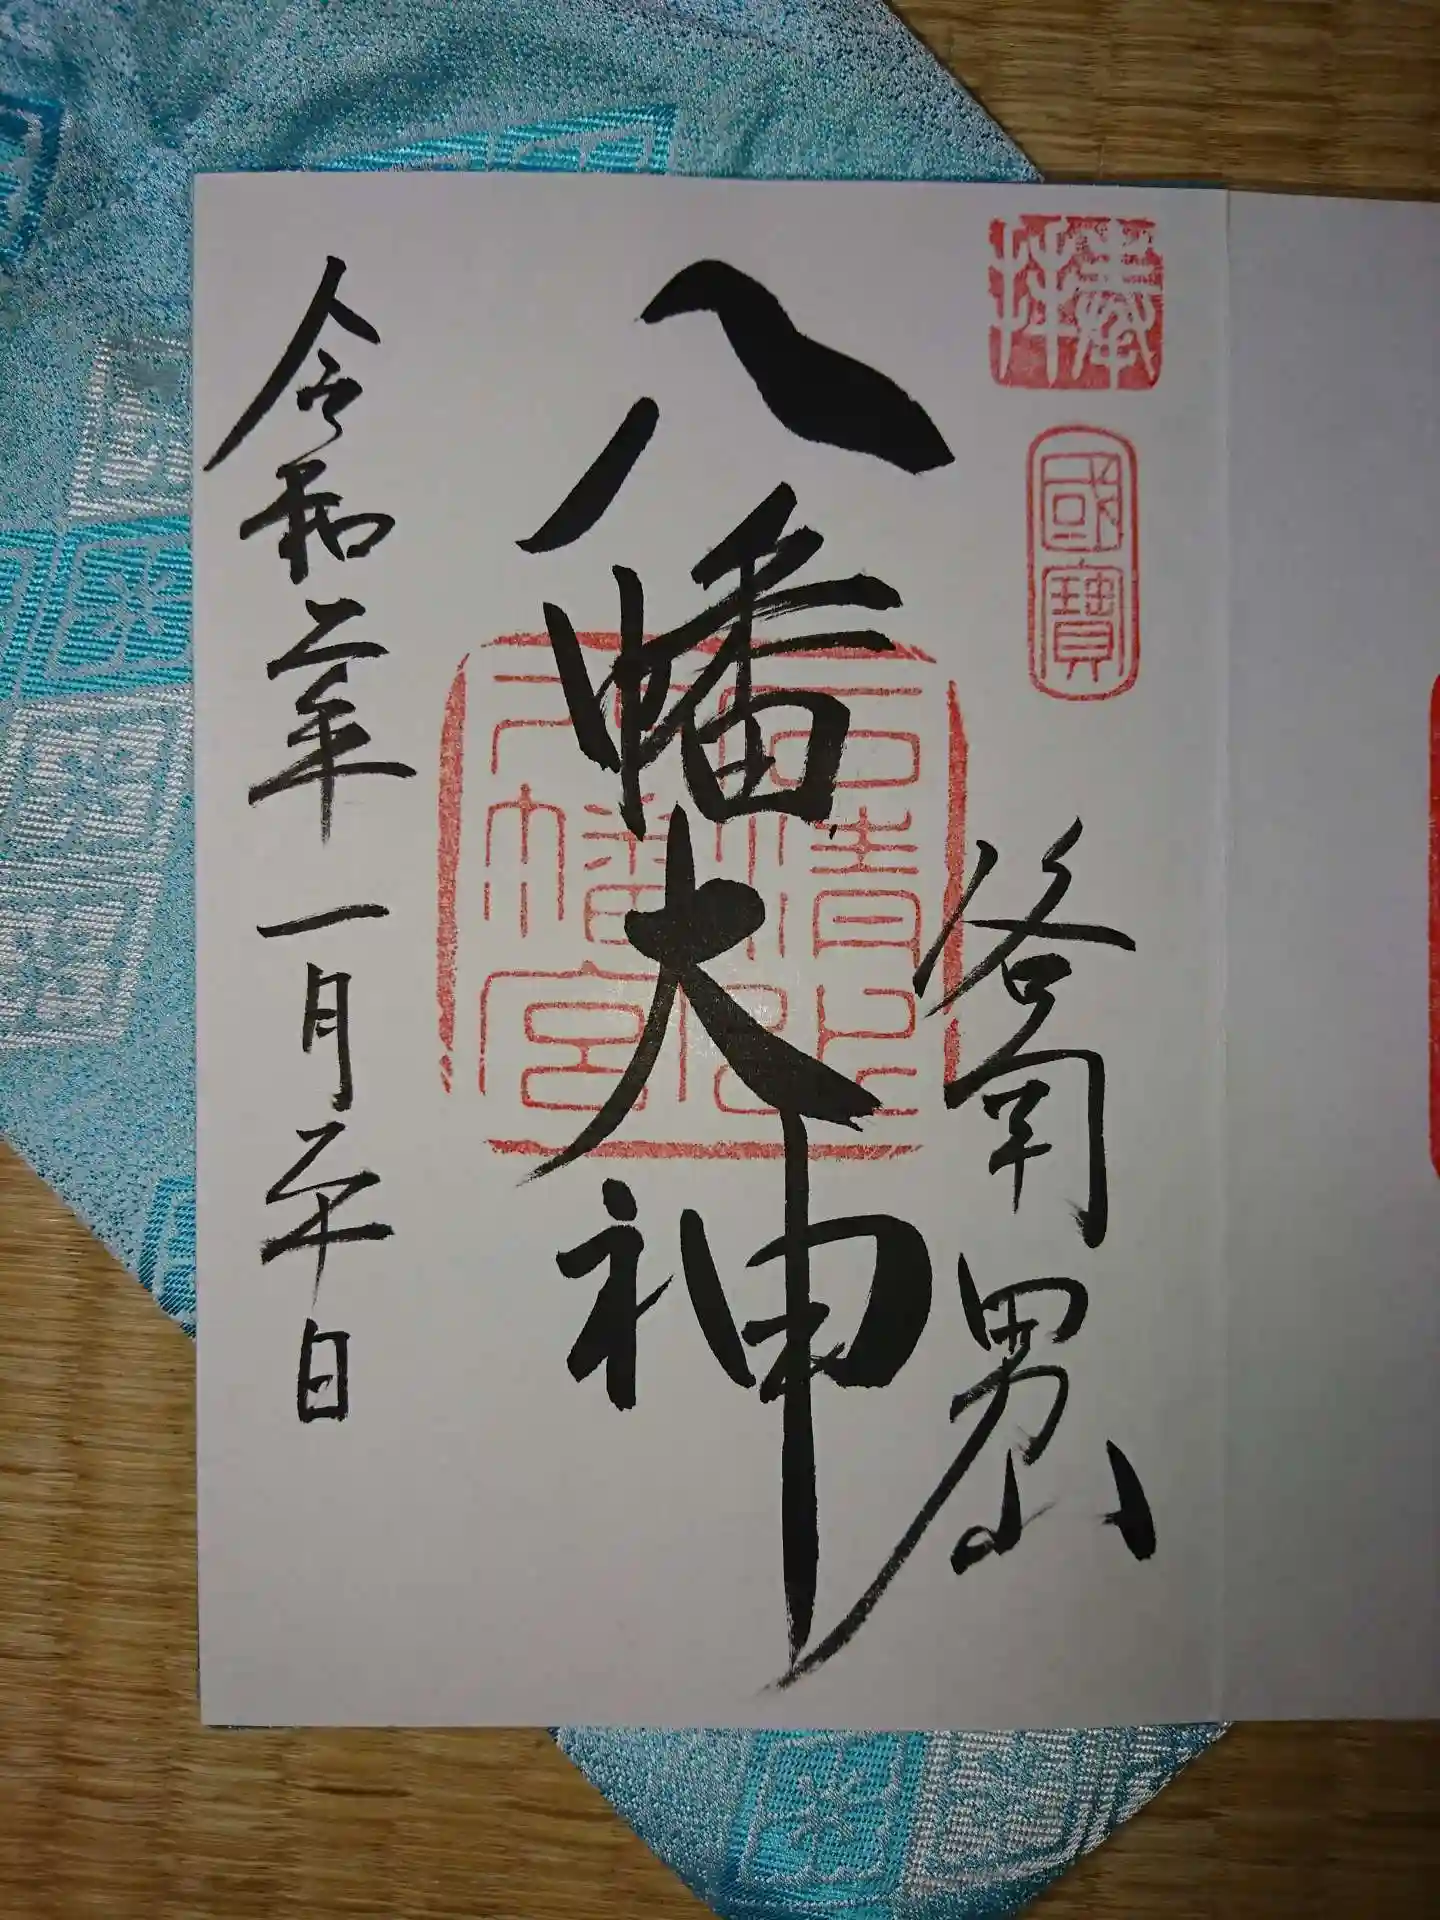 奉拝
國寶
洛南男山
八幡大神
八幡宮
令和二年一月二十日